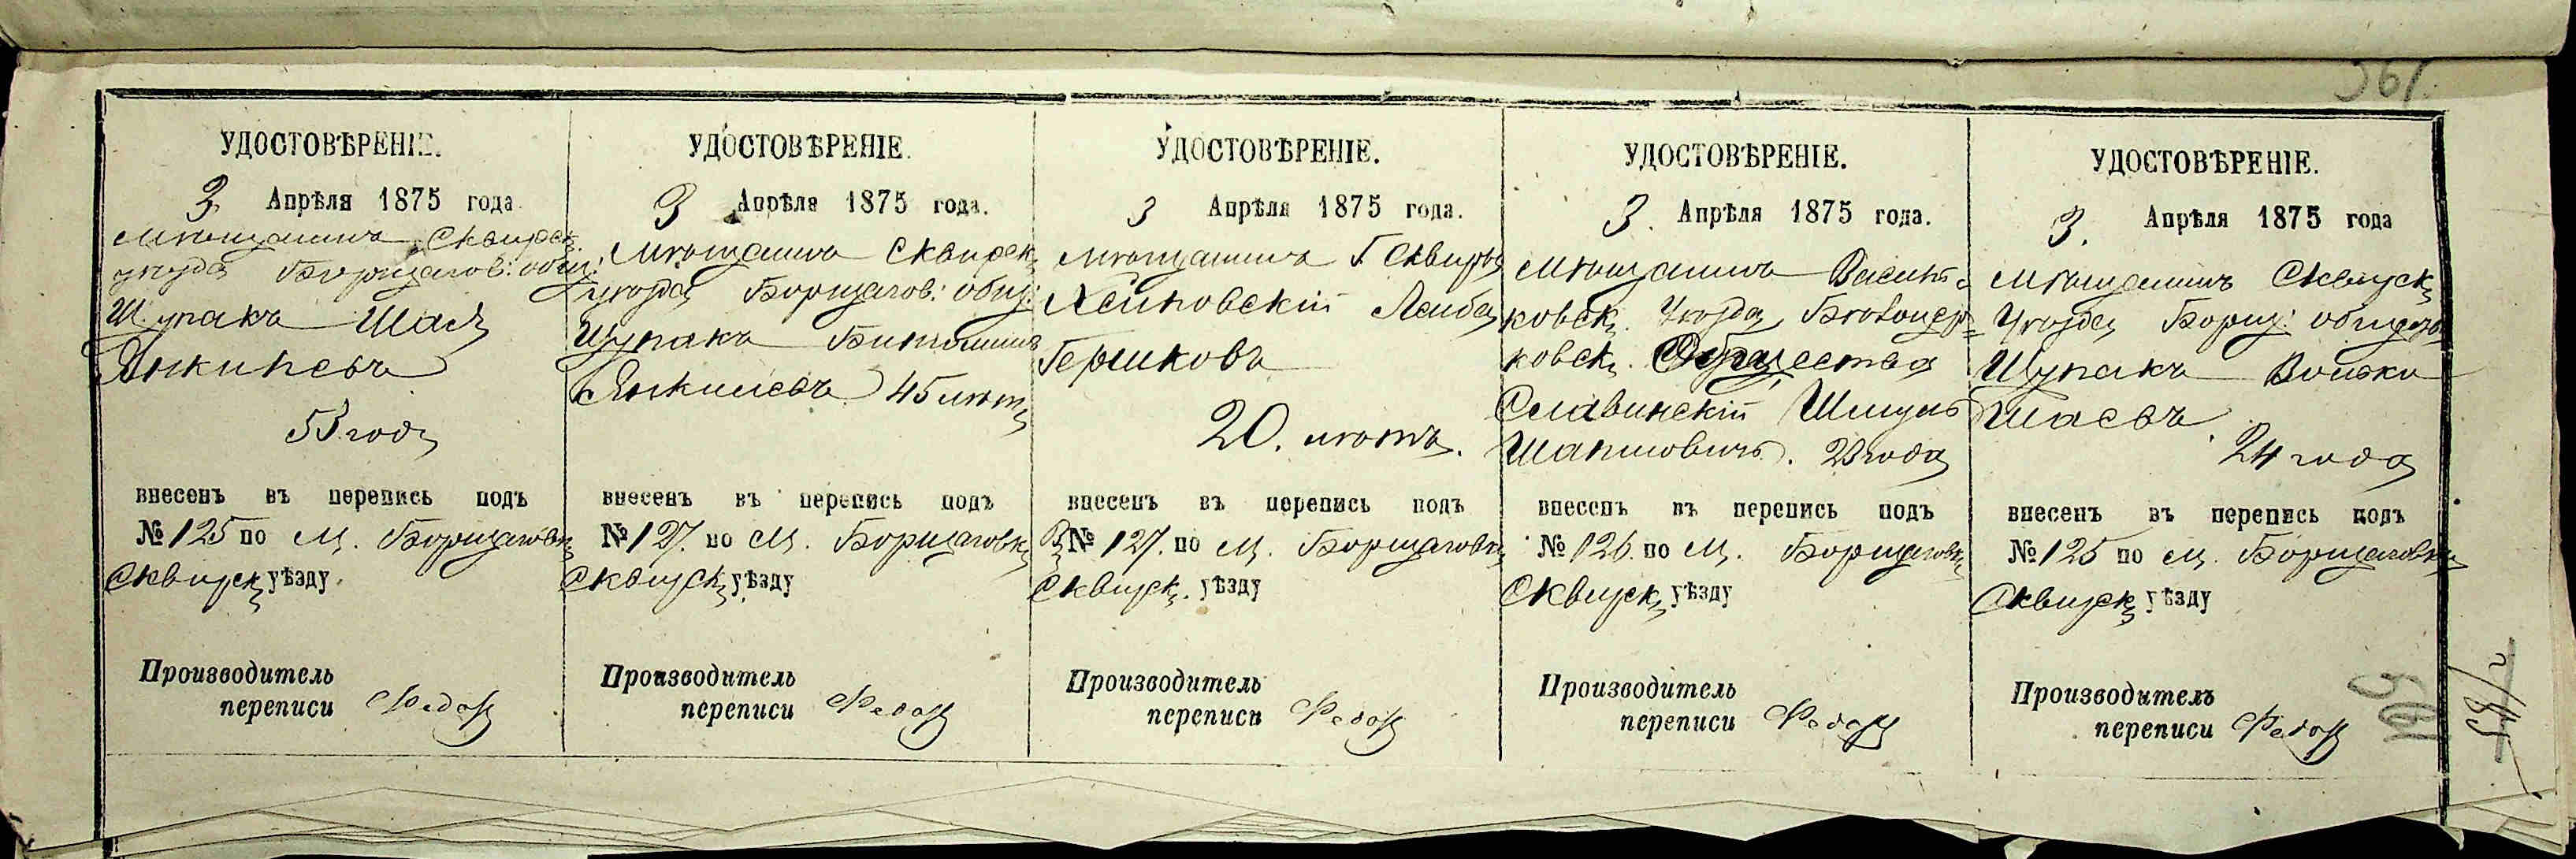 561.
УДОСТОВѢРЕНІЕ.
3. Апрѣля 1875 года
Мѣщанинъ Сквирск.
уѣзда Борщагов: общ:
Щупакъ Шая
Янкилевъ
53 года
внесенъ въ перепись подъ
№ 125 по м. Борщаговк
Сквирск уѣзду.
Производитель
переписи
УДОСТОВѢРЕНІЕ.
3 Апрѣля 1875 года.
Мѣщанинъ Сквирск
уѣзда Борщагов: общ:
Щупакъ
Янкилевъ 45 лѣтъ
внесенъ въ перепись подъ
№ 127. по м. Борщаговк
Сквирск уѣзду
Производитель
переписи
УДОСТОВѢРЕНІЕ.
3 Апрѣля 1875 года.
Мѣщанинъ Г Сквиры
Лейба
Гершковъ
20. лѣтъ.
внесенъ въ перепись подъ
№ 127. по м. Борщаговк
Сквирск. уѣзду
Производитель
переписи
УДОСТОВѢРЕНІЕ.
3. Апрѣля 1875 года.
Мѣщанинъ Василь
ковск. Уѣзда Бѣлоцер=
ковск. Общества
Славинскій Шмуль
23 года
внесенъ въ перепись подъ
№ 126. по м. Борщаговк
Сквирск уѣзду
Производитель
переписи
УДОСТОВѢРЕНІЕ.
3. Апрѣля 1875 года
Мѣщанинъ Сквирск
Уѣзда Борщ: общества
Щупакъ Волько
Шаевъ.
24 года
внесенъ въ перепись подъ
№ 125 по м. Борщаговк
Сквирск уѣзду
Производитель
переписи